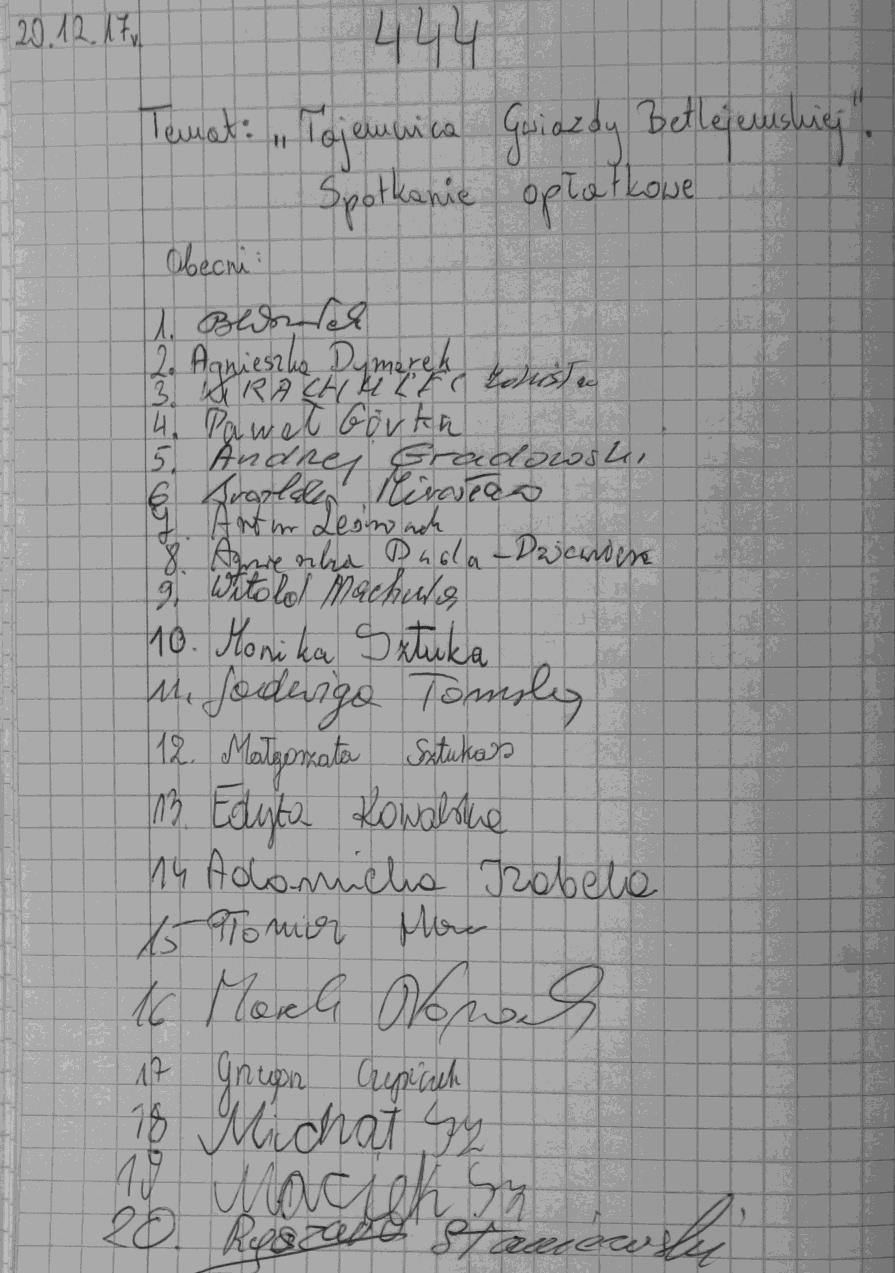 20.12.17r.
444
Temat: „Tajemnica Gwiazdy Betlejemskiej".
Spotkanie opłatkowe
Obecni:
1.
2. Agnieszka Dymarek
3.
4. Paweł Górka
5. Andrzej Gradowski
6 Mirosław
7. Artur Leśniak
8. Agnieszka
9. Witold Machula
10. Monika Sztuka
11. Jadwiga
12. Małgorzata Sztuka
13. Edyta Kowalska
14 Adamicka Izabela
15
16 Marek Nowak
17 Grupa
18 Michał Sz
19 Maciek Sz
20. Ryszard Staniewski